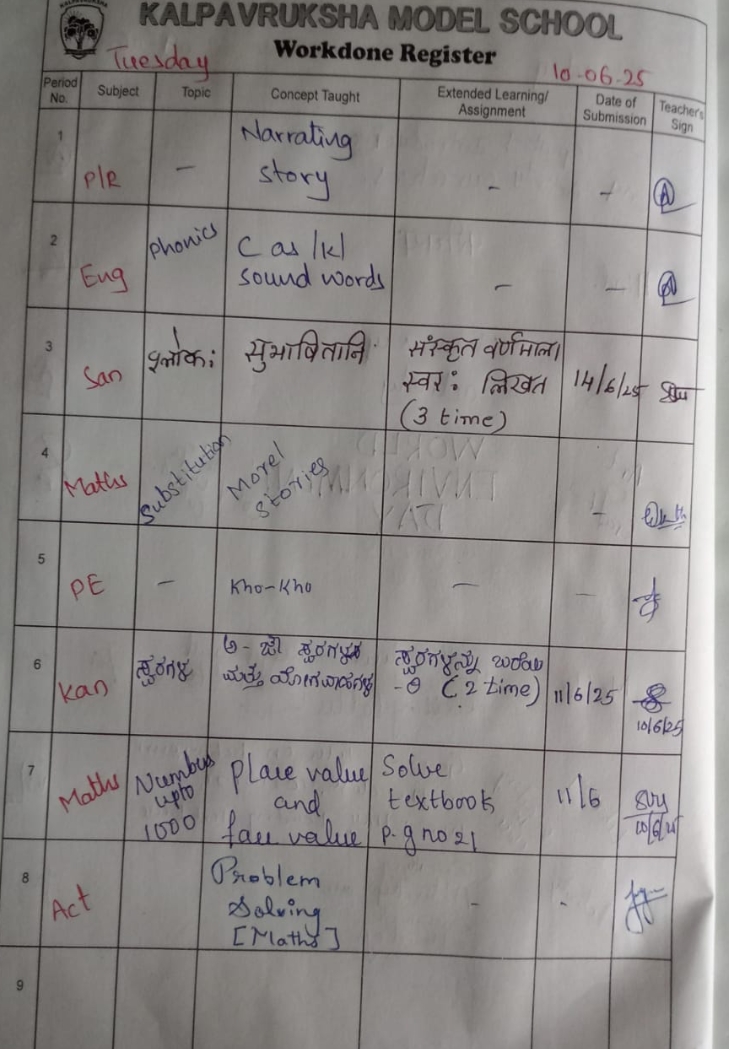 KALPAVRUKSHA MODEL SCHOOL
Workdone Register
Tuesday 10-06-25
Period No. Subject Topic Concept Taught Extended Learning/ Assignment Date of Submission Teacher's Sign
1 P/R - Narrating story - -
2 Eng phonics C as /k/ sound words - -
3 San श्लोकः सुभाषितानि संस्कृत वर्णमाला स्वरः लिखत (3 time) 14/6/25
4 Maths Substitution Morel stories -
5 PE - Kho-Kho - -
6 Kan ಸ್ವರಗಳು ಅ - ಔ ಸ್ವರಗಳು ಮತ್ತು ಯೋಗವಾಹಗಳು ಸ್ವರಗಳನ್ನು ಬರೆಯಿರಿ (2 time) 11/6/25 10/6/25
7 Maths Numbers upto 1000 Place value and face value Solve textbook p.g no 21 11/6
8 Act Problem Solving [Maths] - -
9